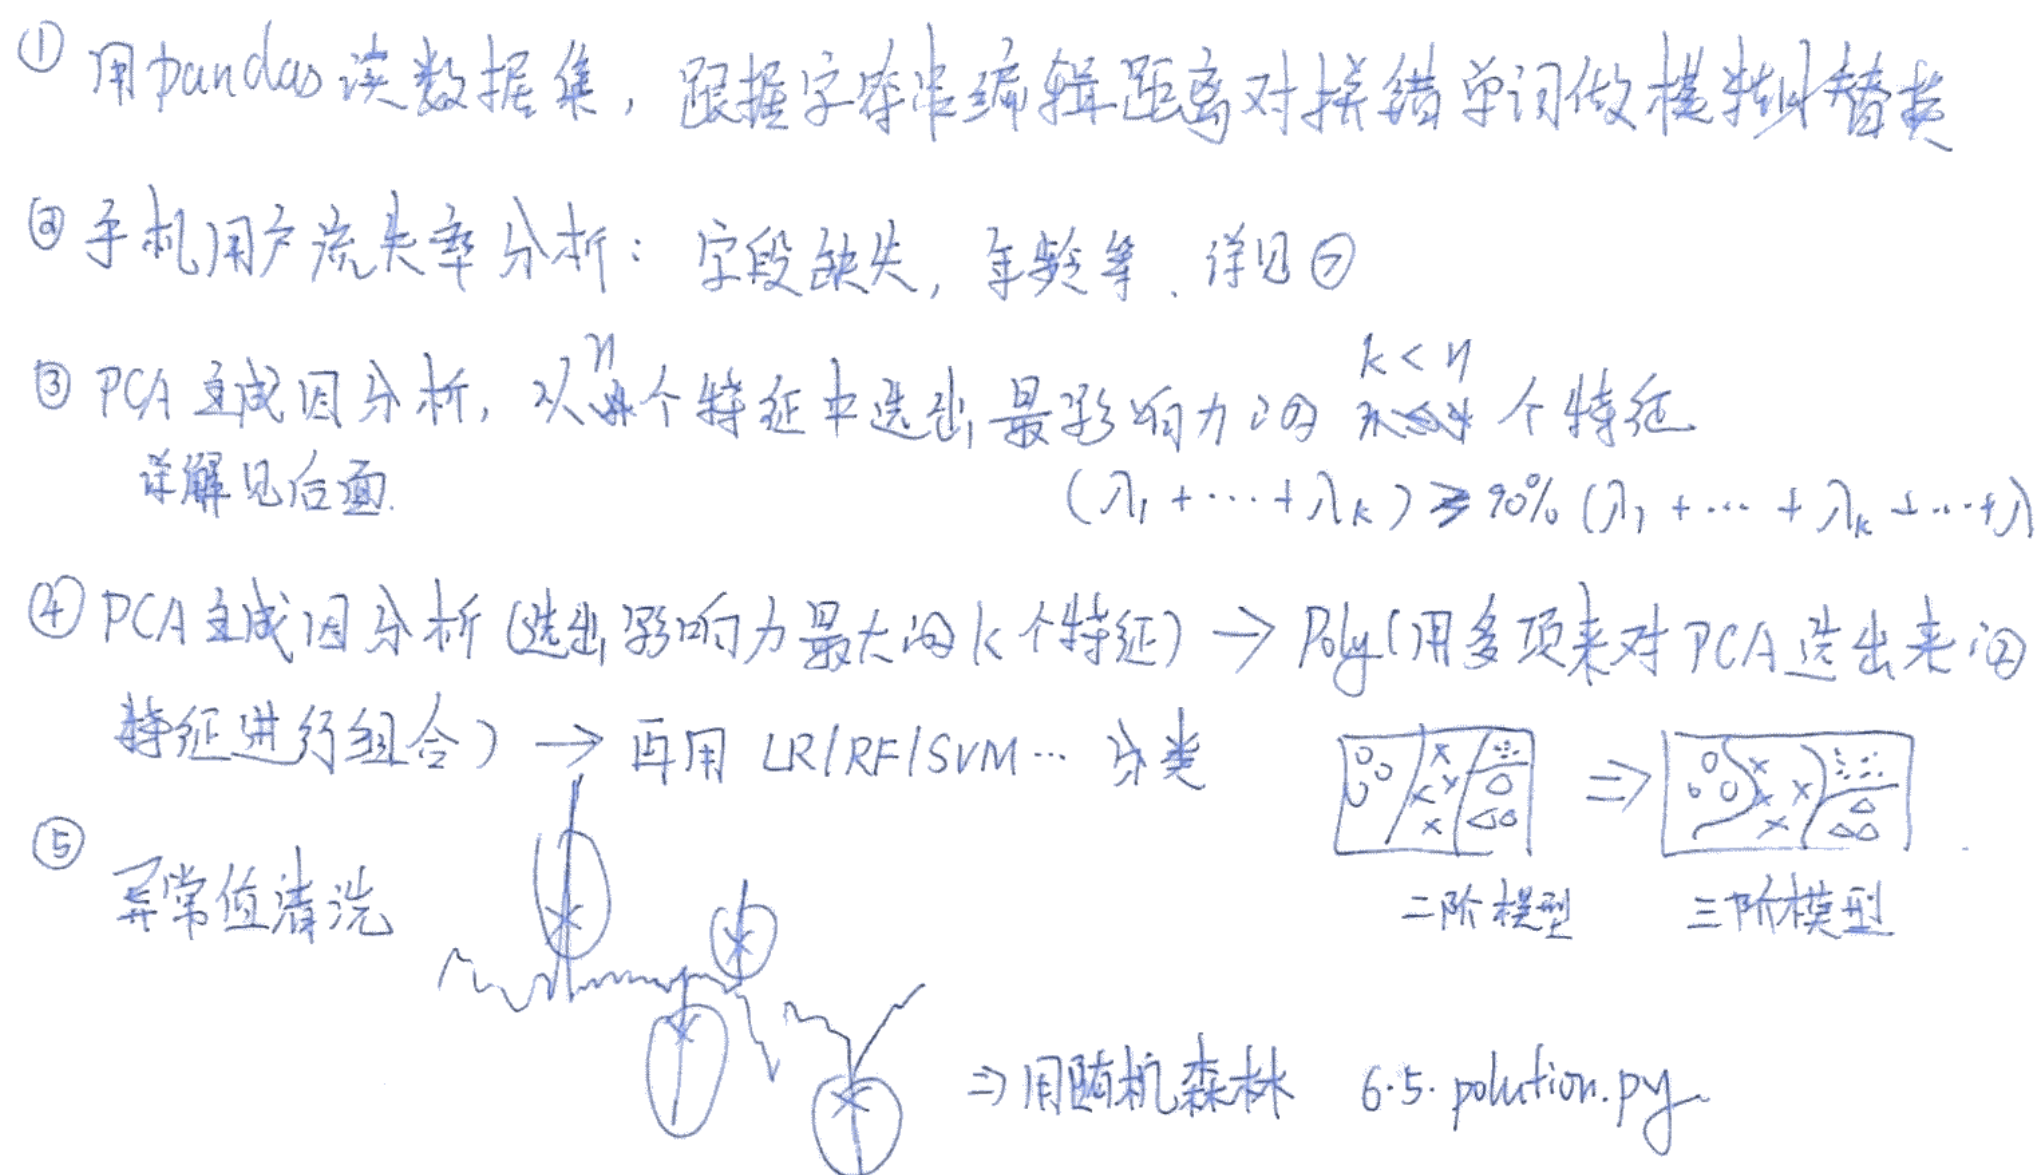 ① 用pandas读数据集，跟据字符串编辑距离对拼错单词做模糊替换
② 手机用户流失率分析：字段缺失，年龄等、详见⑦
③ PCA主成因分析，从n个特征中选出最影响力的 k<n 个特征
详解见后面.
(λ₁+…+λₖ) ≥ 90% (λ₁+…+λₖ+…+λ
④ PCA主成因分析(选出影响力最大的k个特征) → Poly(用多项来对PCA选出来的
特征进行组合) → 再用 LR/RF/SVM… 分类
⇒
二阶模型 三阶模型
⑤ 异常值清洗
⇒ 用随机森林 6.5.polution.py